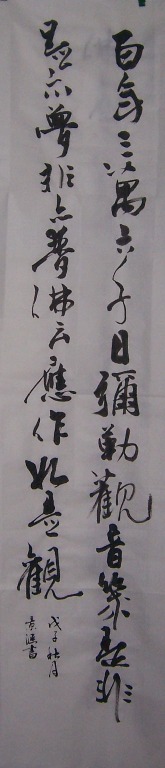 百年三萬六千日彌勒觀音幾是非
是亦夢非亦夢佛云應作如是觀
戊子秋月
書